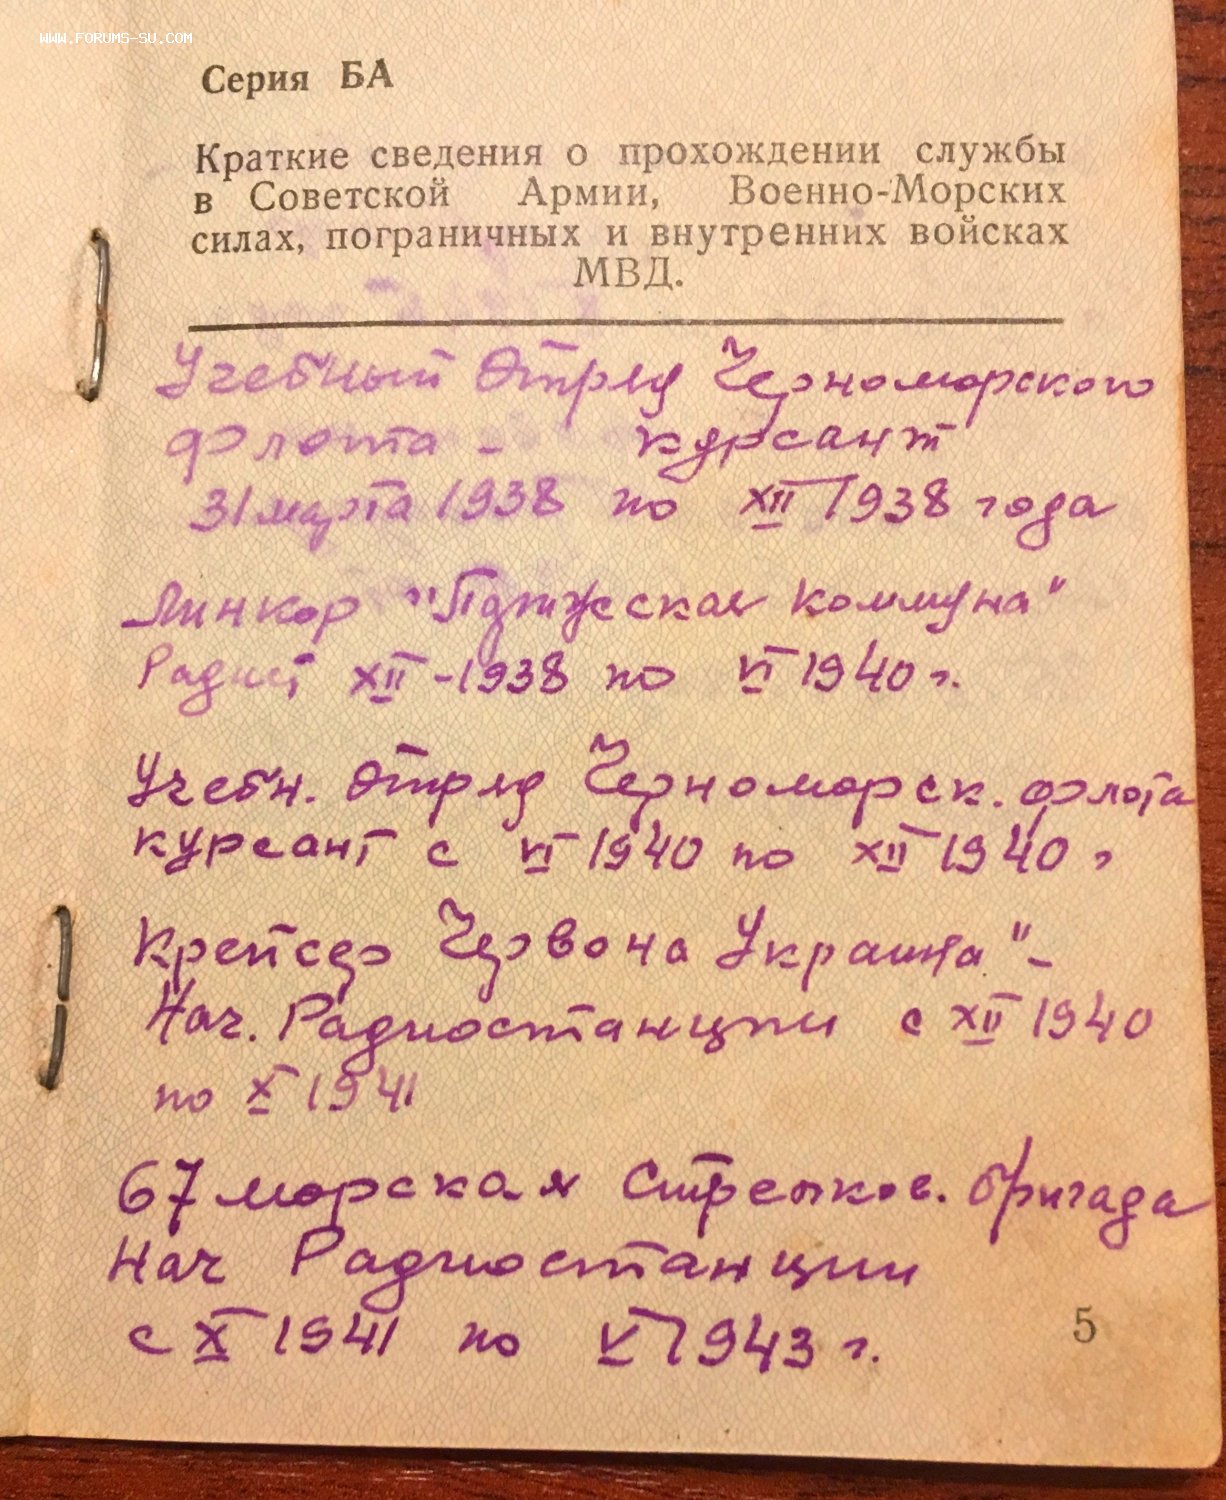 WWW.FORUMS-SU.COM
Серия БА
Краткие сведения о прохождении службы
в Советской Армии, Военно-Морских
силах, пограничных и внутренних войсках
МВД.
Учебный Отряд Черноморского
Флота - курсант
31 марта 1938 по XII 1938 года
Линкор "Парижская Коммуна"
Радист XII - 1938 по VI 1940 г.
Учебн. Отряд Черноморск. Флота
курсант с VI 1940 по XII 1940 г
Крейсер Червона Украина" -
Нач. Радиостанции с XII 1940
по X 1941
67 морская Стрелков. бригада
Нач Радиостанции
с X 1941 по V 1943 г.
5